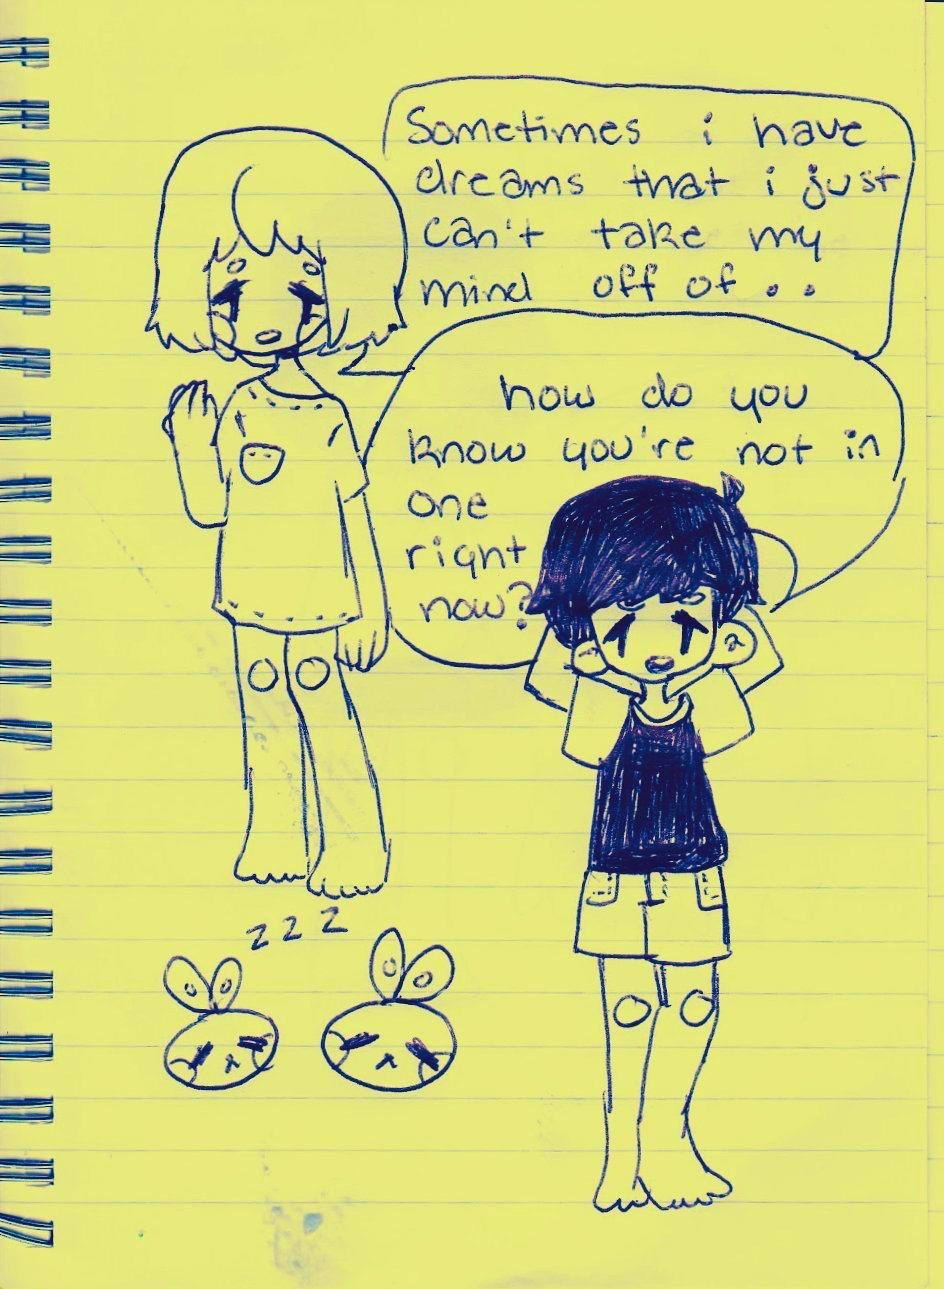 Sometimes i have
dreams that i just
can't take my
mind off of..
how do you
know you're not in
one
right
now?
z z z